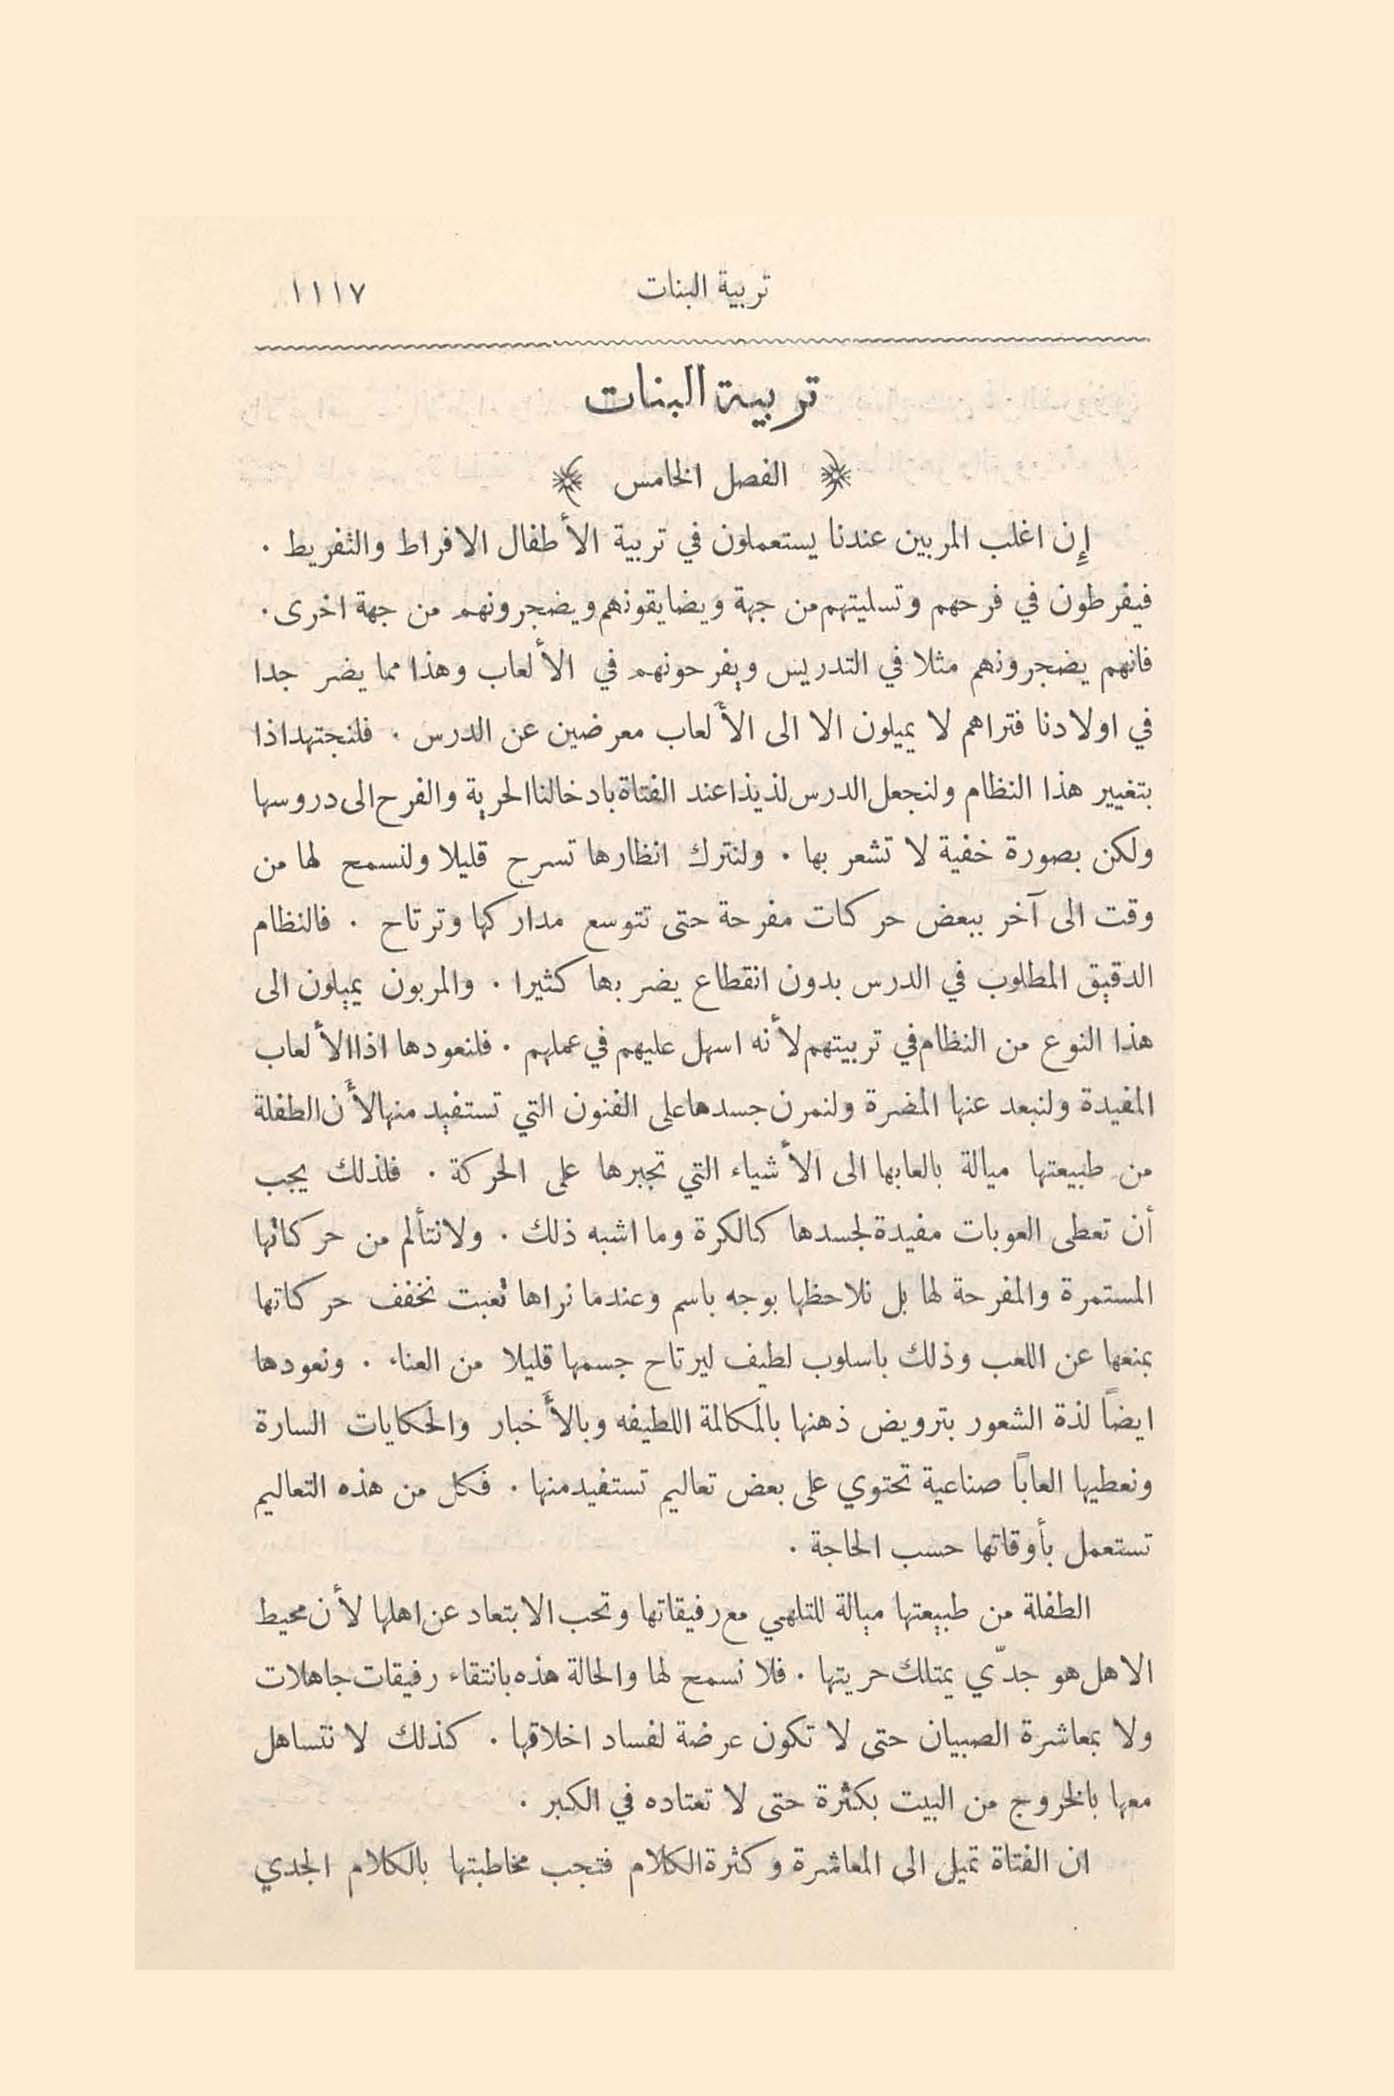 تربية البنات ١١١٧
تربية البنات
الفصل الخامس
إِن اغلب المربين عندنا يستعملون في تربية الأطفال الافراط والتفريط .
فيفرطون في فرحهم وتسليتهم من جهة ويضايقونهم ويضجرونهم من جهة اخرى .
فانهم يضجرونهم مثلا في التدريس ويفرحونهم في الألعاب وهذا مما يضر جدا
في اولادنا فتراهم لا يميلون الا الى الألعاب معرضين عن الدرس . فلنجتهد اذا
بتغيير هذا النظام ولنجعل الدرس لذيذا عند الفتاة بادخالنا الحرية والفرح الى دروسها
ولكن بصورة خفية لا تشعر بها . ولنترك انظارها تسرح قليلا ولنسمح لها من
وقت الى آخر ببعض حركات مفرحة حتى تتوسع مداركها وترتاح . فالنظام
الدقيق المطلوب في الدرس بدون انقطاع يضر بها كثيرا . والمربون يميلون الى
هذا النوع من النظام في تربيتهم لأنه اسهل عليهم في عملهم . فلنعودها اذا الألعاب
المفيدة ولنبعد عنها المضرة ولنمرن جسدها على الفنون التي تستفيد منها لأن الطفلة
من طبيعتها ميالة بالعابها الى الأشياء التي تجبرها على الحركة . فلذلك يجب
أن تعطى العوبات مفيدة لجسدها كالكرة وما اشبه ذلك . ولا نتألم من حركاتها
المستمرة والمفرحة لها بل نلاحظها بوجه باسم وعندما نراها تعبت نخفف حركاتها
بمنعها عن اللعب وذلك باسلوب لطيف ليرتاح جسمها قليلا من العناء . ونعودها
ايضاً لذة الشعور بترويض ذهنها بالمكالمة اللطيفه وبالأخبار والحكايات السارة
ونعطيها العاباً صناعية تحتوي على بعض تعاليم تستفيد منها . فكل من هذه التعاليم
تستعمل بأوقاتها حسب الحاجة .
الطفلة من طبيعتها ميالة للتلهي مع رفيقاتها وتحب الابتعاد عن اهلها لأن محيط
الاهل هو جدّي يمتلك حريتها . فلا نسمح لها والحالة هذه بانتقاء رفيقات جاهلات
ولا بمعاشرة الصبيان حتى لا تكون عرضة لفساد اخلاقها . كذلك لا نتساهل
معها بالخروج من البيت بكثرة حتى لا تعتاده في الكبر .
ان الفتاة تميل الى المعاشرة وكثرة الكلام فتجب مخاطبتها بالكلام الجدي